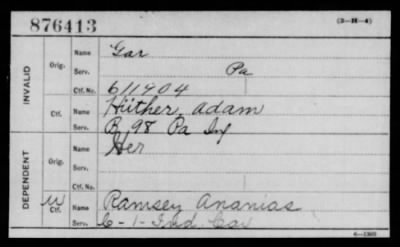 876413 (3-H-4)
INVALID
Orig.
Name Gar
Serv. Pa
Ctf. No. 611904
Ctf.
Name Hüther, Adam
Serv. B, 98 Pa Inf
DEPENDENT
Orig.
Name Her
Serv.
Ctf. No.
Ctf.
Name Ramsey Ananias
Serv. C - 1 - Ind. Cav